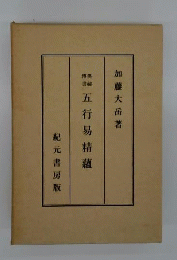 加藤大岳著
五行易精蘊
紀元書房版